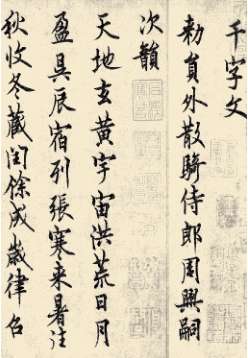 千字文
勑員外散騎侍郎周興嗣
次韻
天地玄黃宇宙洪荒日月
盈昃辰宿列張寒来暑往
秋收冬藏閏餘成歲律召